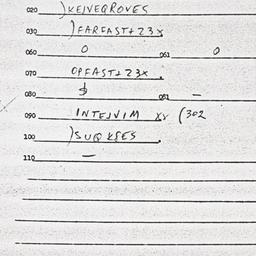 020 )KEIVEGROVES
030 )FARFAST+23x
060 0 061 0
070 OPFAST+23x.
080 $ 081 –
090 INTEJVIM xv (302
100 )SUQKSES.
110 –